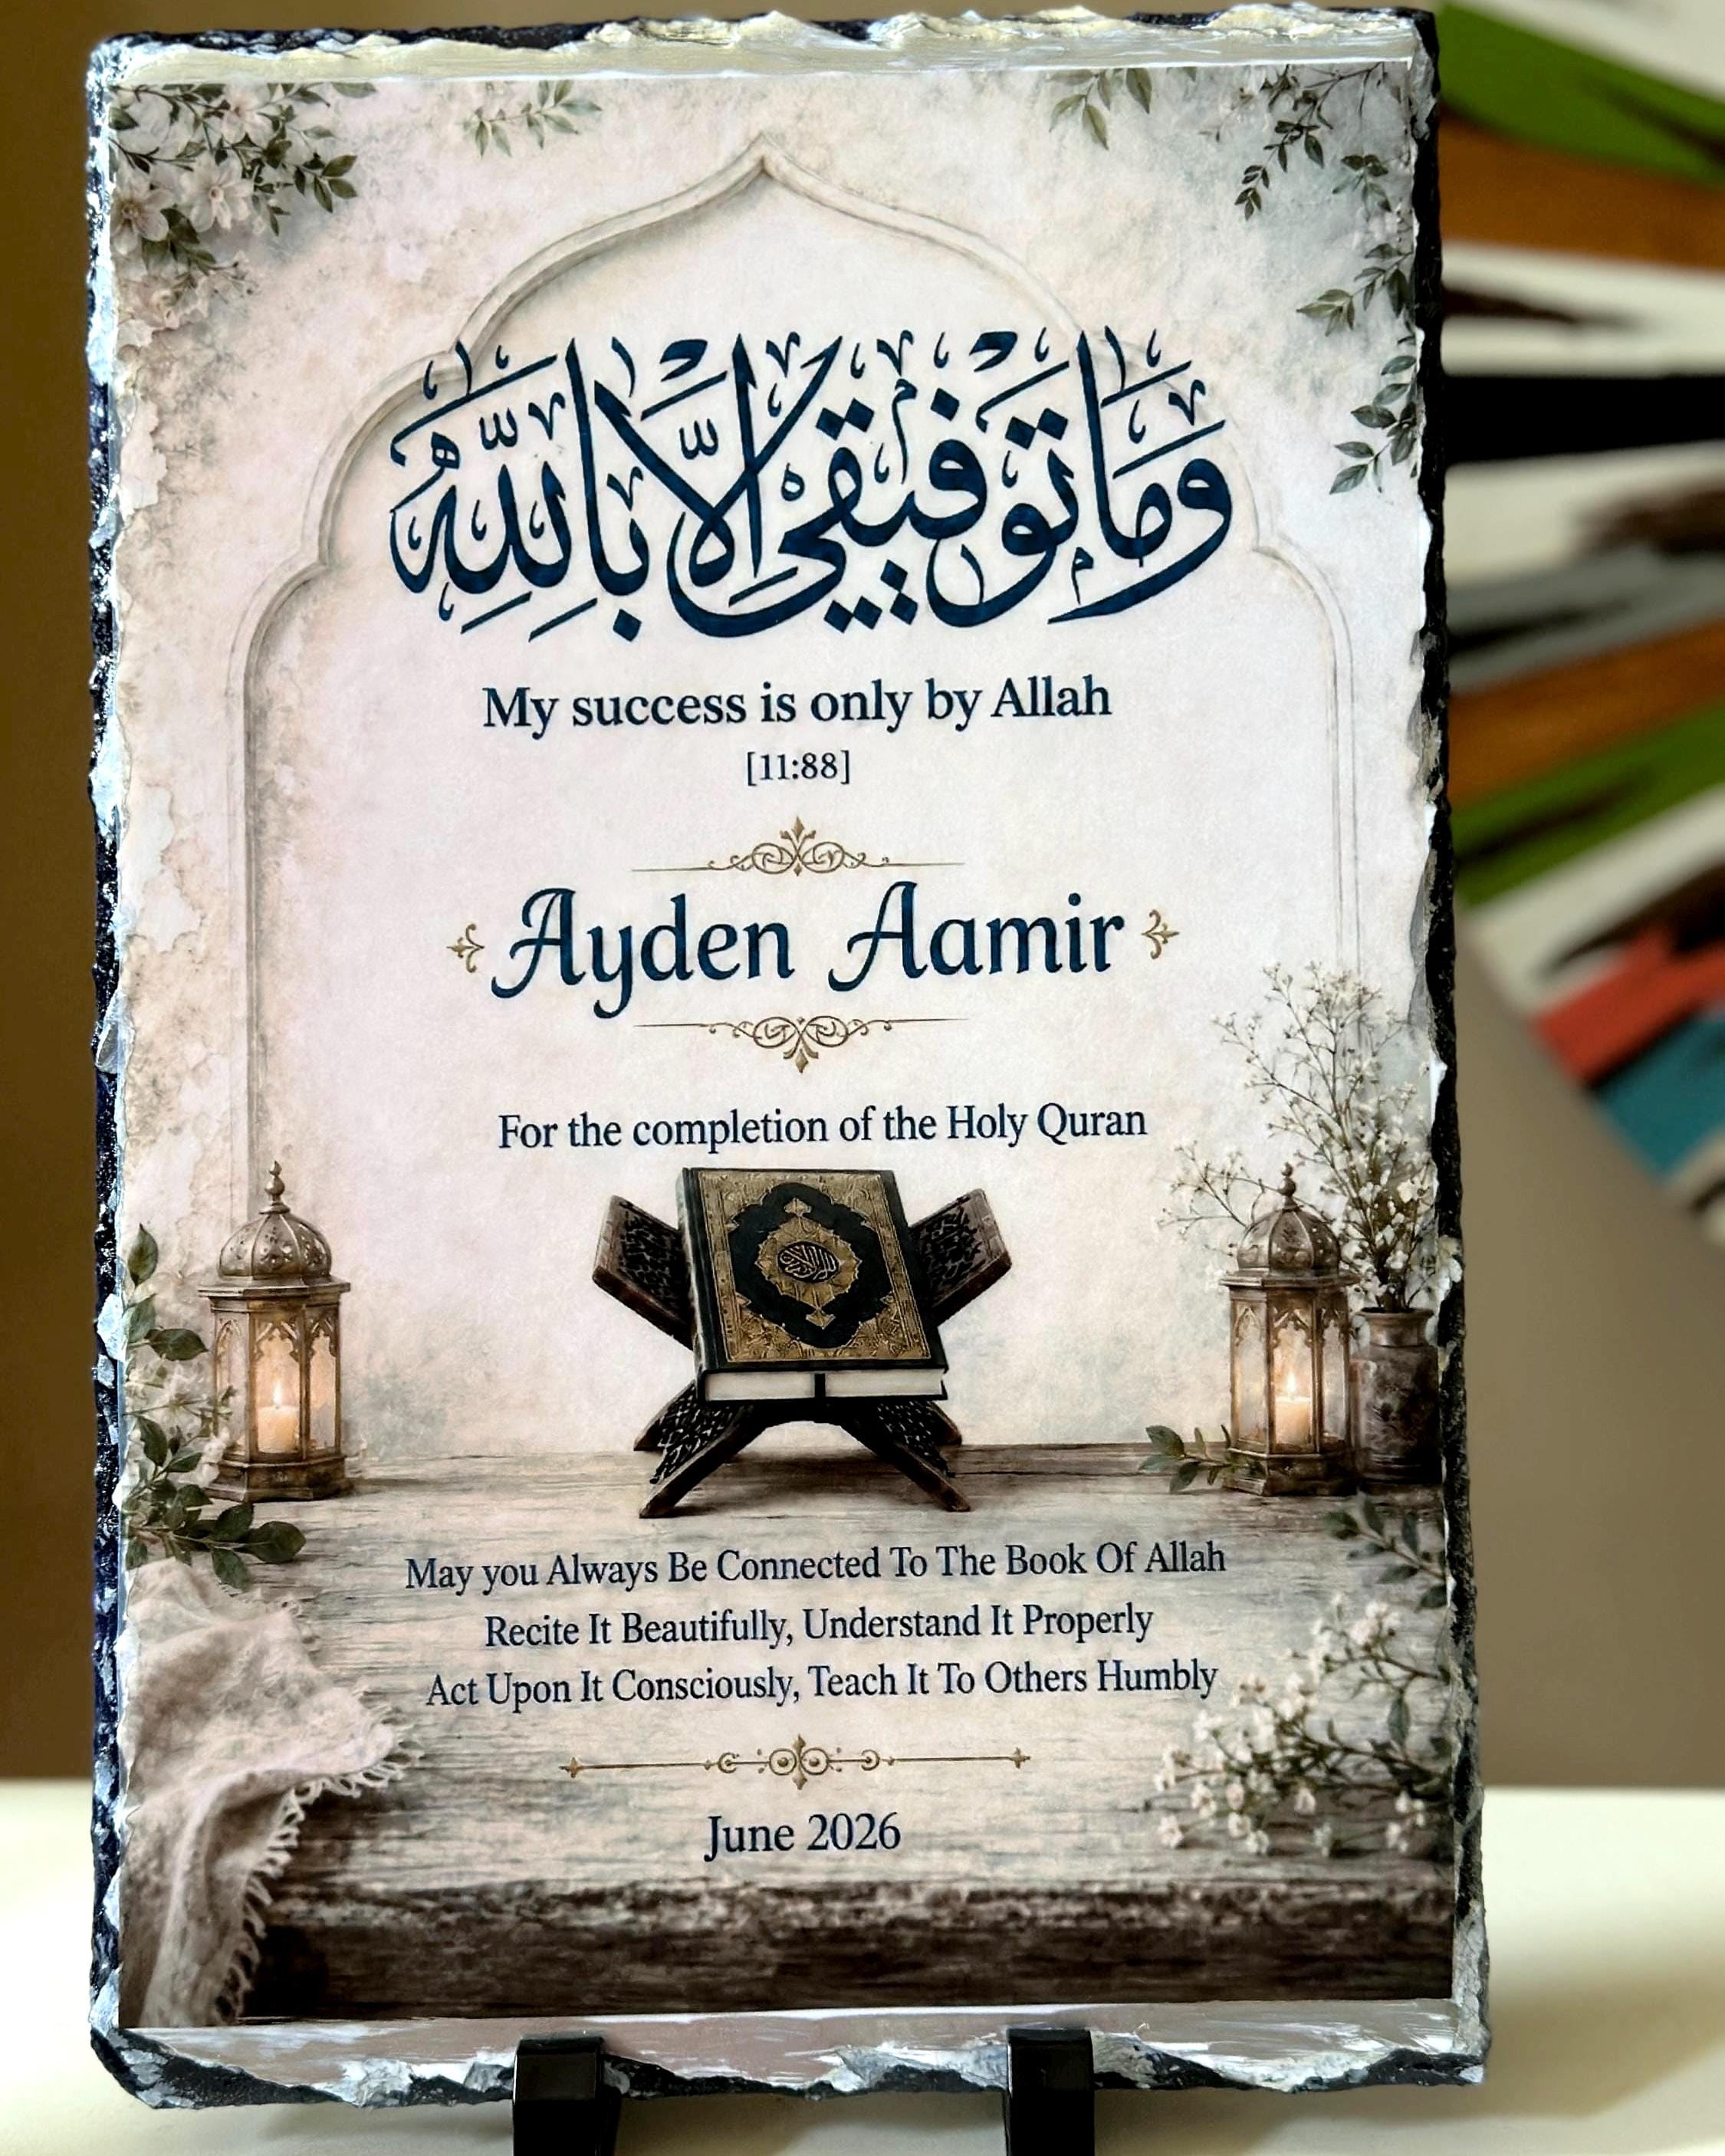 وَمَا تَوْفِيقِي إِلَّا بِاللَّهِ
My success is only by Allah
[11:88]
Ayden Aamir
For the completion of the Holy Quran
May you Always Be Connected To The Book Of Allah
Recite It Beautifully, Understand It Properly
Act Upon It Consciously, Teach It To Others Humbly
June 2026